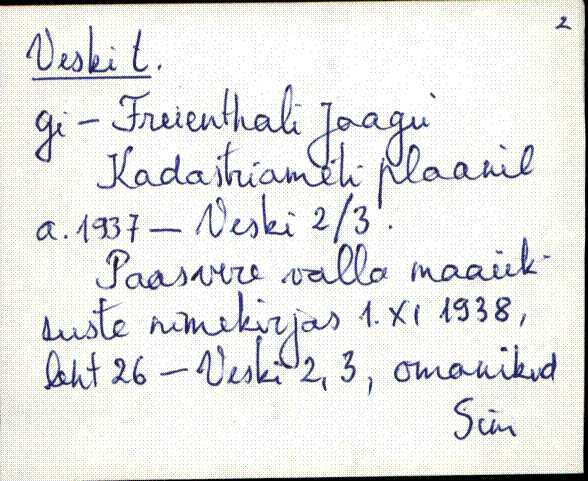 2
Veski t.
gi - Freienthali Jaagu
Kadastriameti plaanil
a. 1937 - Veski 2/3.
Paasvere valla maaük-
suste nimekirjas 1. XI 1938,
leht 26 - Veski 2, 3, omanikud
Siim